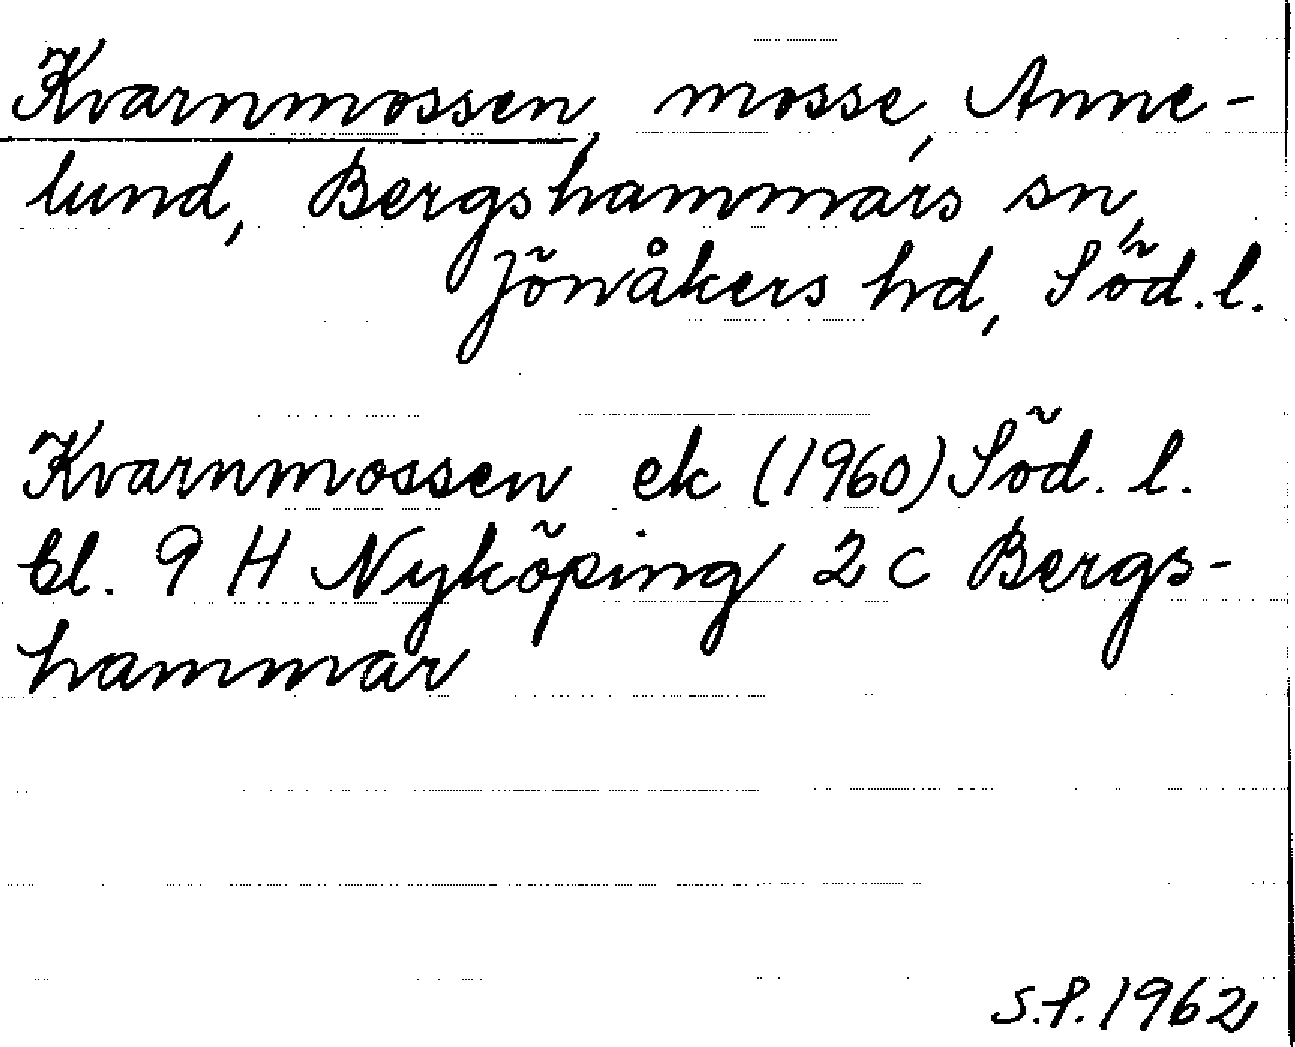 Kvarnmossen, mosse, Anne-
lund, Bergshammars sn,
Jönåkers hd, Söd. l.
Kvarnmossen ek (1960) Söd. l.
bl. 9 H Nyköping 2 c Bergs-
hammar
S.P. 1962